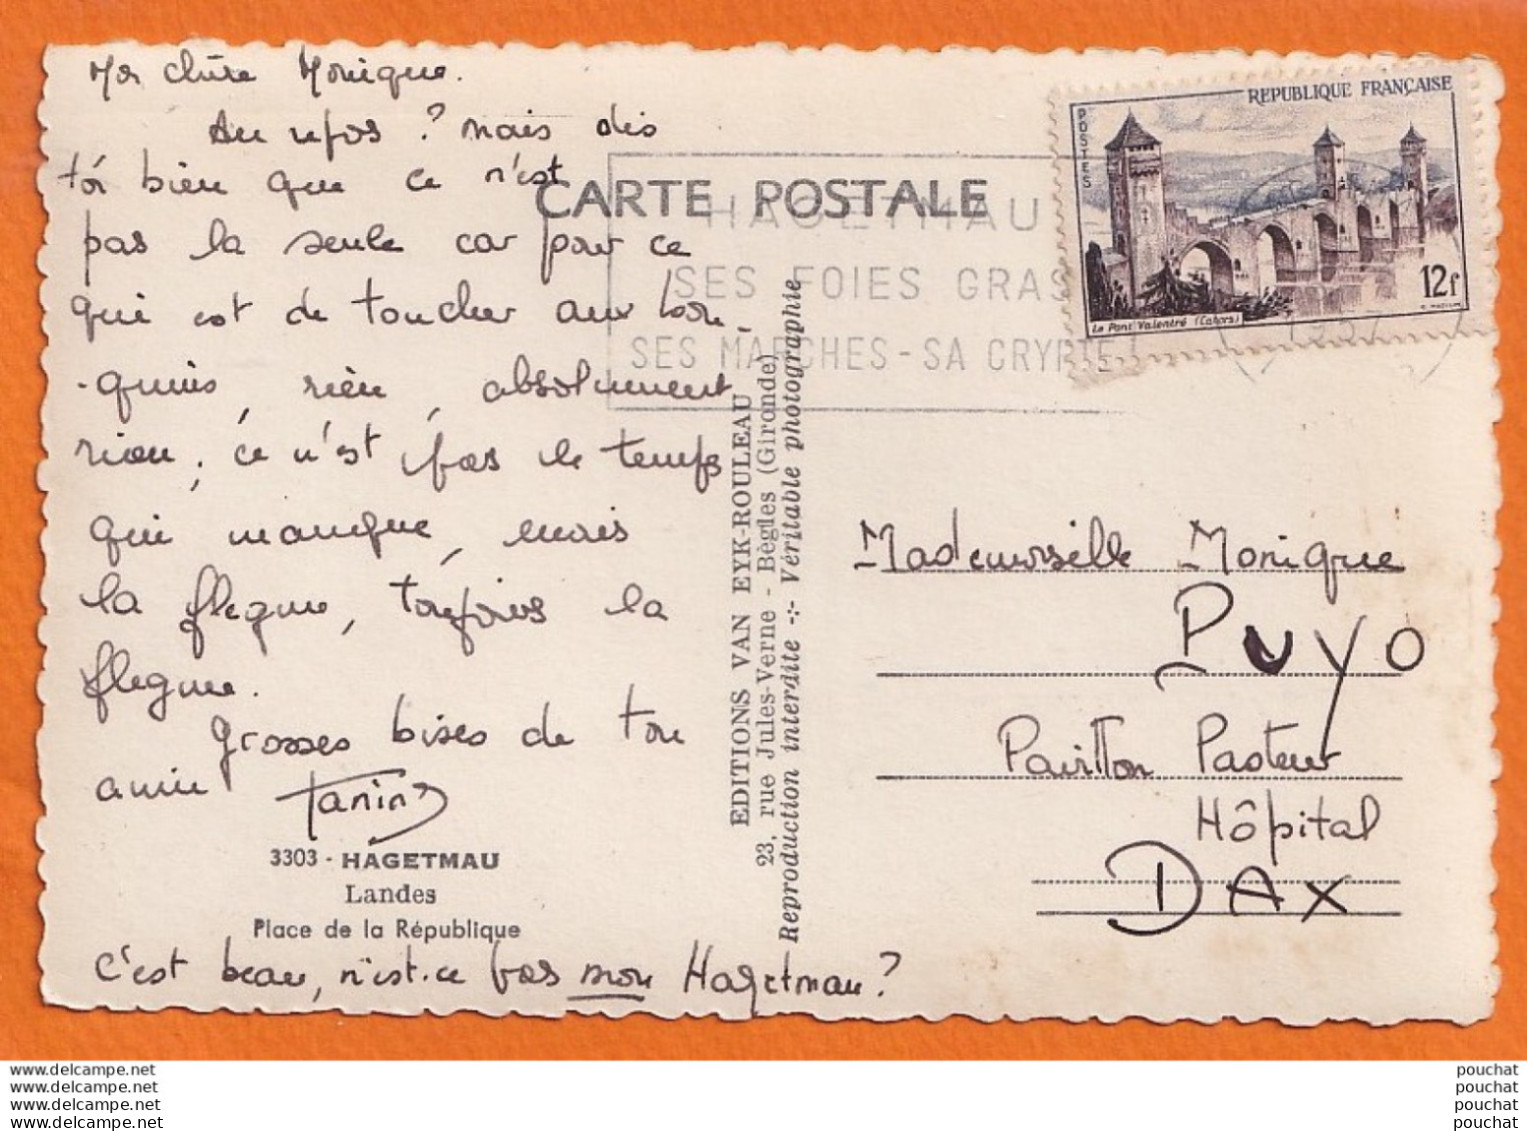 Ma chère Monique.
Au repos ? mais dis
toi bien que ce n'est
pas la seule car pour ce
qui est de toucher aux bou,
-quins, rien, absolument
rien, ce n'est pas le temps
qui manque, mais
la flegme, toujours la
flegme.
Grosses bises de ton
amie
3303 - HAGETMAU
Landes
Place de la République
C'est beau, n'est-ce pas mon Hagetmau ?
CARTE POSTALE
HAGETMAU
SES FOIES GRAS
SES MARCHES - SA CRYPTE
REPUBLIQUE FRANÇAISE
POSTES
12f
Le Pont Valentré (Cahors)
EDITIONS VAN EYK-ROULEAU
23, rue Jules-Verne - Bègles (Gironde)
Reproduction interdite -:- Véritable photographie
Mademoiselle Monique
PUYO
Pavillon Pasteur
Hôpital
DAX
www.delcampe.net
www.delcampe.net
www.delcampe.net
www.delcampe.net
pouchat
pouchat
pouchat
pouchat